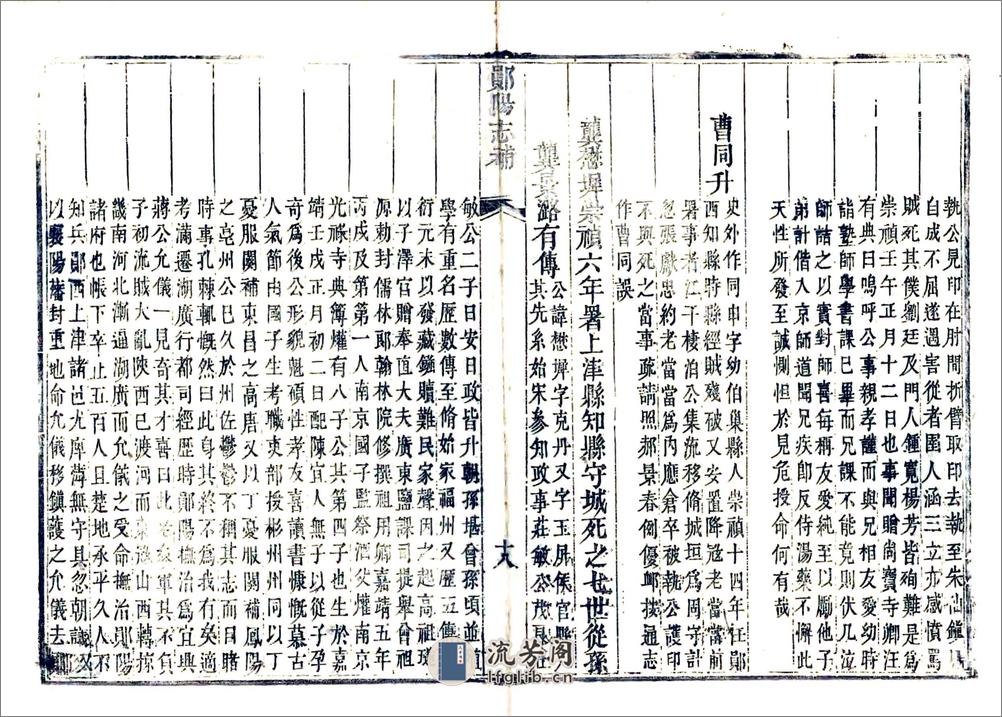 執公見印在肘間折臂取印去執至朱仙鎮
自成不屈遂遇害從者圉人涵三立亦感憤罵
賊死其僕劉廷及門人鍾寬楊芳皆殉難是爲
崇禎壬午正月十二日也事聞贈尚寶寺卿汪
有典曰嗚呼公事親孝謹而與兄相友愛幼時
詣塾師學書課巳畢而兄課不能竟則伏几泣
師詰之以實對師喜每稱友愛純至以勵他子
弟計偕入京師道聞兄疾即反侍湯藥不懈此
天性所發至誠惻怛於見危授命何有哉
曹同升
史外作同申字幼伯巢縣人崇禎十四年任鄖
西知縣時縣經賊殘破又安置降冦老當當前
署事者江干棲泊公集流移脩城垣爲周守計
忽張獻忠約老當當爲內應倉卒被執公護印
不與死之當事疏請照郝景春例優䘏採通志
作曹同誤
龔懋墀崇禎六年署上津縣知縣守城死之七世從孫
龔景潞有傳
公諱懋墀字克丹又字玉屏侯官縣
其先系始宋參知政事莊敏公茂良莊
鄖陽志補
十八
敏公二子曰安曰政皆升朝孫堪曾孫頃並
學有重名歷數傳至脩始家福州又歷五傳
衍元末以發藏鏹贖難民家聲丙之起高祖瑛
以子澤官贈奉直大夫廣東鹽課司提舉曾祖
源勅封儒林郎翰林院修撰祖用卿嘉靖五年
丙戌廷試及第第一人南京國子監祭酒父爟南京
光祿寺典簿爟有八子公其第四子也生於嘉
靖壬戌正月初二日配陳宜人無子以從子孕
奇爲後公形貌魁碩性孝友喜讀書慷慨慕古
人氣節由國子生考職吏部授彬州州同
憂服闋補東昌之高唐又以丁憂服闋補鳳陽
之亳州公巳久於州佐鬱鬱不稱其志而目睹
時事孔棘輒慨然曰此身其終不爲我有矣適
考滿遷湖廣行都司經歷時鄖陽撫治爲宜興
蔣公允儀一見奇其才嘗曰此
子初流賊大亂陝西巳渡河而東逸山西轉掠
畿南河北漸逼湖廣而允儀之受命撫治鄖陽
諸府也帳下卒止五百人且楚地承平久人不
知兵鄖西上津諸邑尤庳薄無守具忽朝議又
以襄陽藩封重地命允儀移鎮護之允儀去鄖
流芳阁
lfglib.com